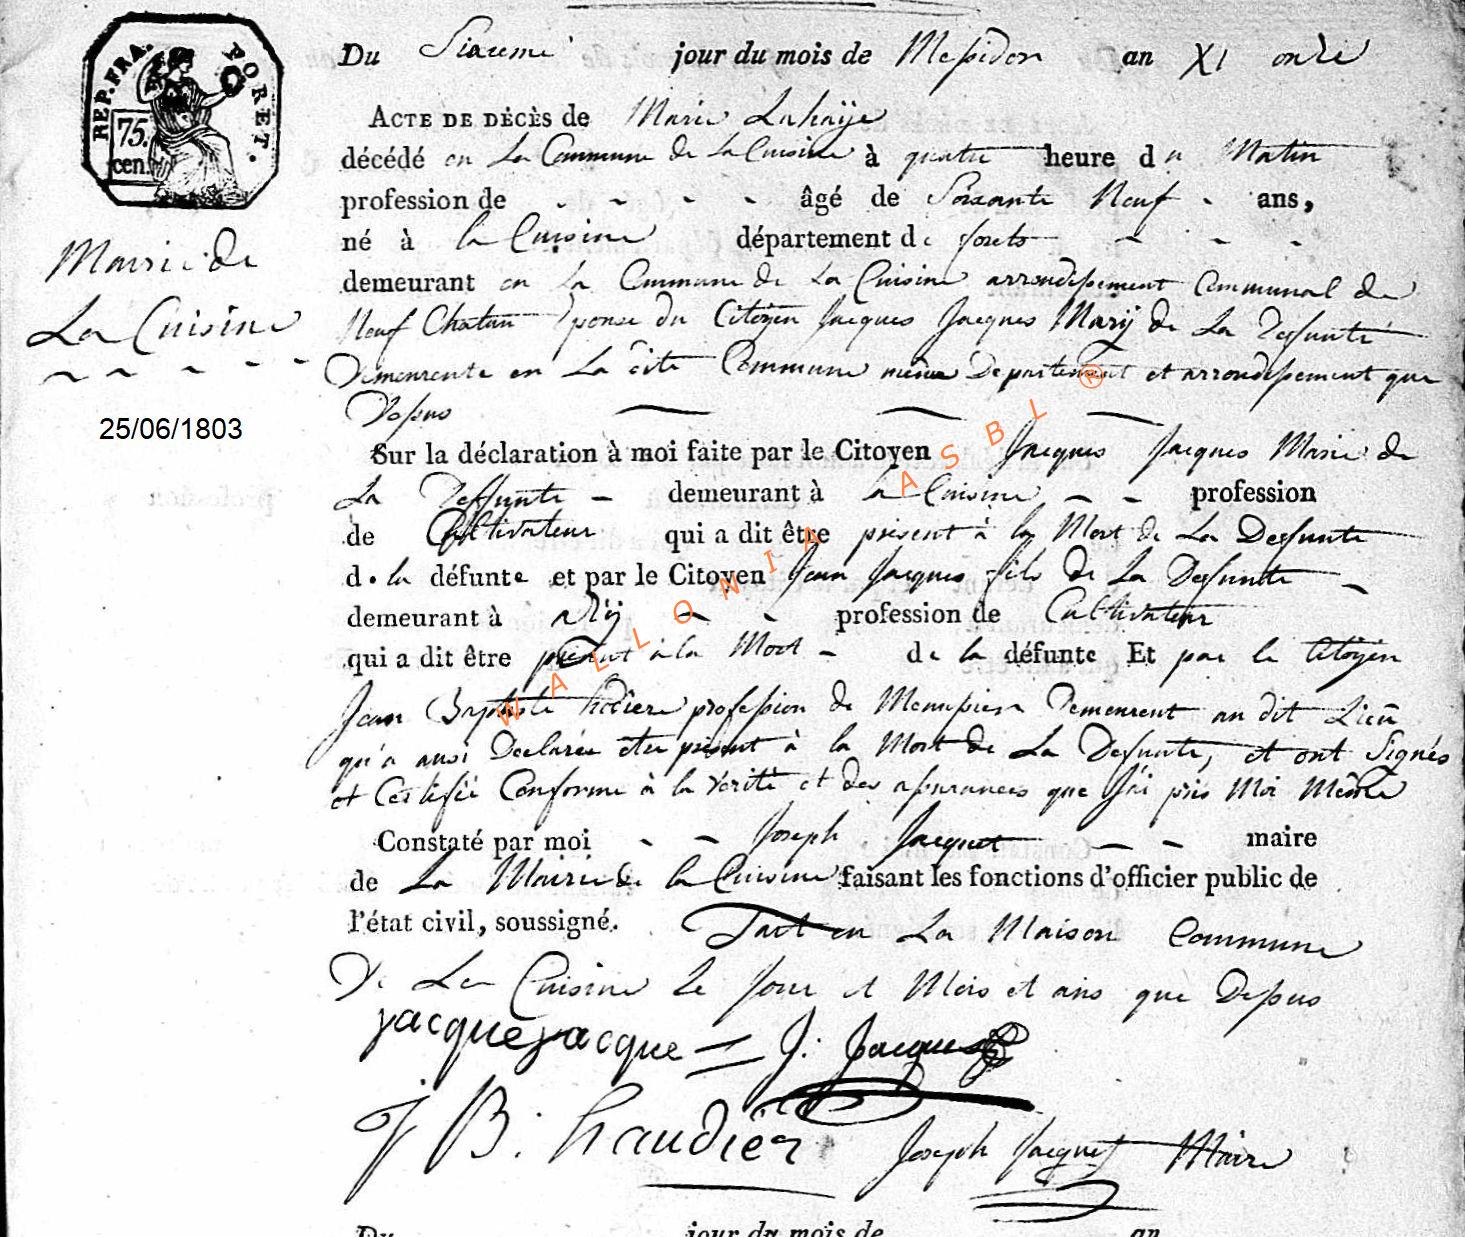 REP. FRA. PORET.
75. cen.
Du Sixieme jour du mois de Messidor an XI onze
ACTE DE DÉCÈS de Marie Lahaÿe
décédé en La Commune de La Cuisine à quatre heure du Matin
profession de - - - - âgé de Soixante Neuf - ans,
né à la Cuisine département de forets - - -
Mairie de
La Cuisine
demeurant en La Commune de La Cuisine arrondissement Communal de
Neuf Chatau Epouse du Citöyen Jacques Jacques Marÿ de La Defunte
Demeurente en La dite Commune même Departement et arrondissement que
Desus
25/06/1803
Sur la déclaration à moi faite par le Citoyen Jacques Jacques Marie de
La Deffunte - demeurant à la Cuisine - - profession
de Cultivateur qui a dit être présent à la Mort de La Defunte
de la défunte et par le Citoyen Jean Jacques fils de La Defunte -
demeurant à - - profession de Cultivateur
qui a dit être présent à la Mort - de la défunte Et par le Citöyen
Jean Baptiste profession de Menusier Demeurent au dit Lieu
qu'a aussi Declarée éter présent à la Mort de La Defunte, et ont Signés
et Certifié Conforme à la Vérité et des assurances que J'ai pris Moi Même
Constaté par moi - - Joseph Jacquet - - maire
de La Mairie de la Cuisine faisant les fonctions d'officier public de
l'état civil, soussigné. Fait en La Maison Commune
De La Cuisine Le Jour et Mois et ans que Desus
jacque jacque J: Jacques
J B: haudier Joseph Jacquet Maire
Du jour du mois de an
WALLONIA ASBL ®